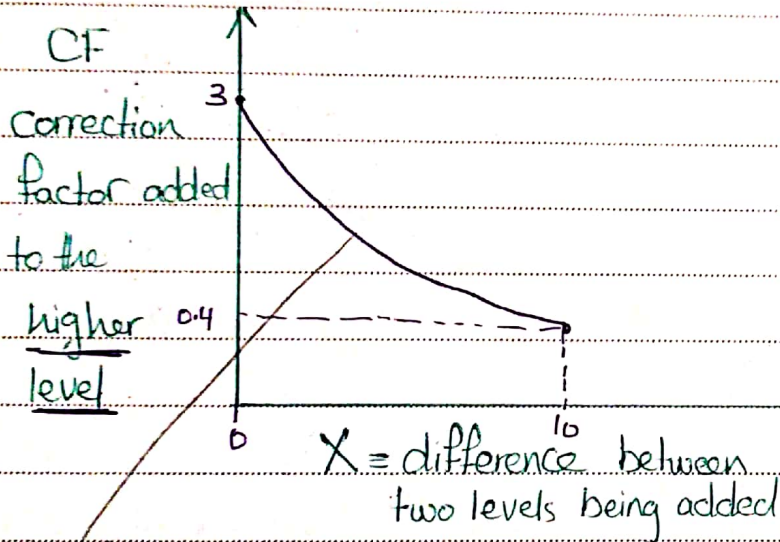 CF
correction
factor added
to the
higher
level
3
0.4
0
10
X = difference between
two levels being added